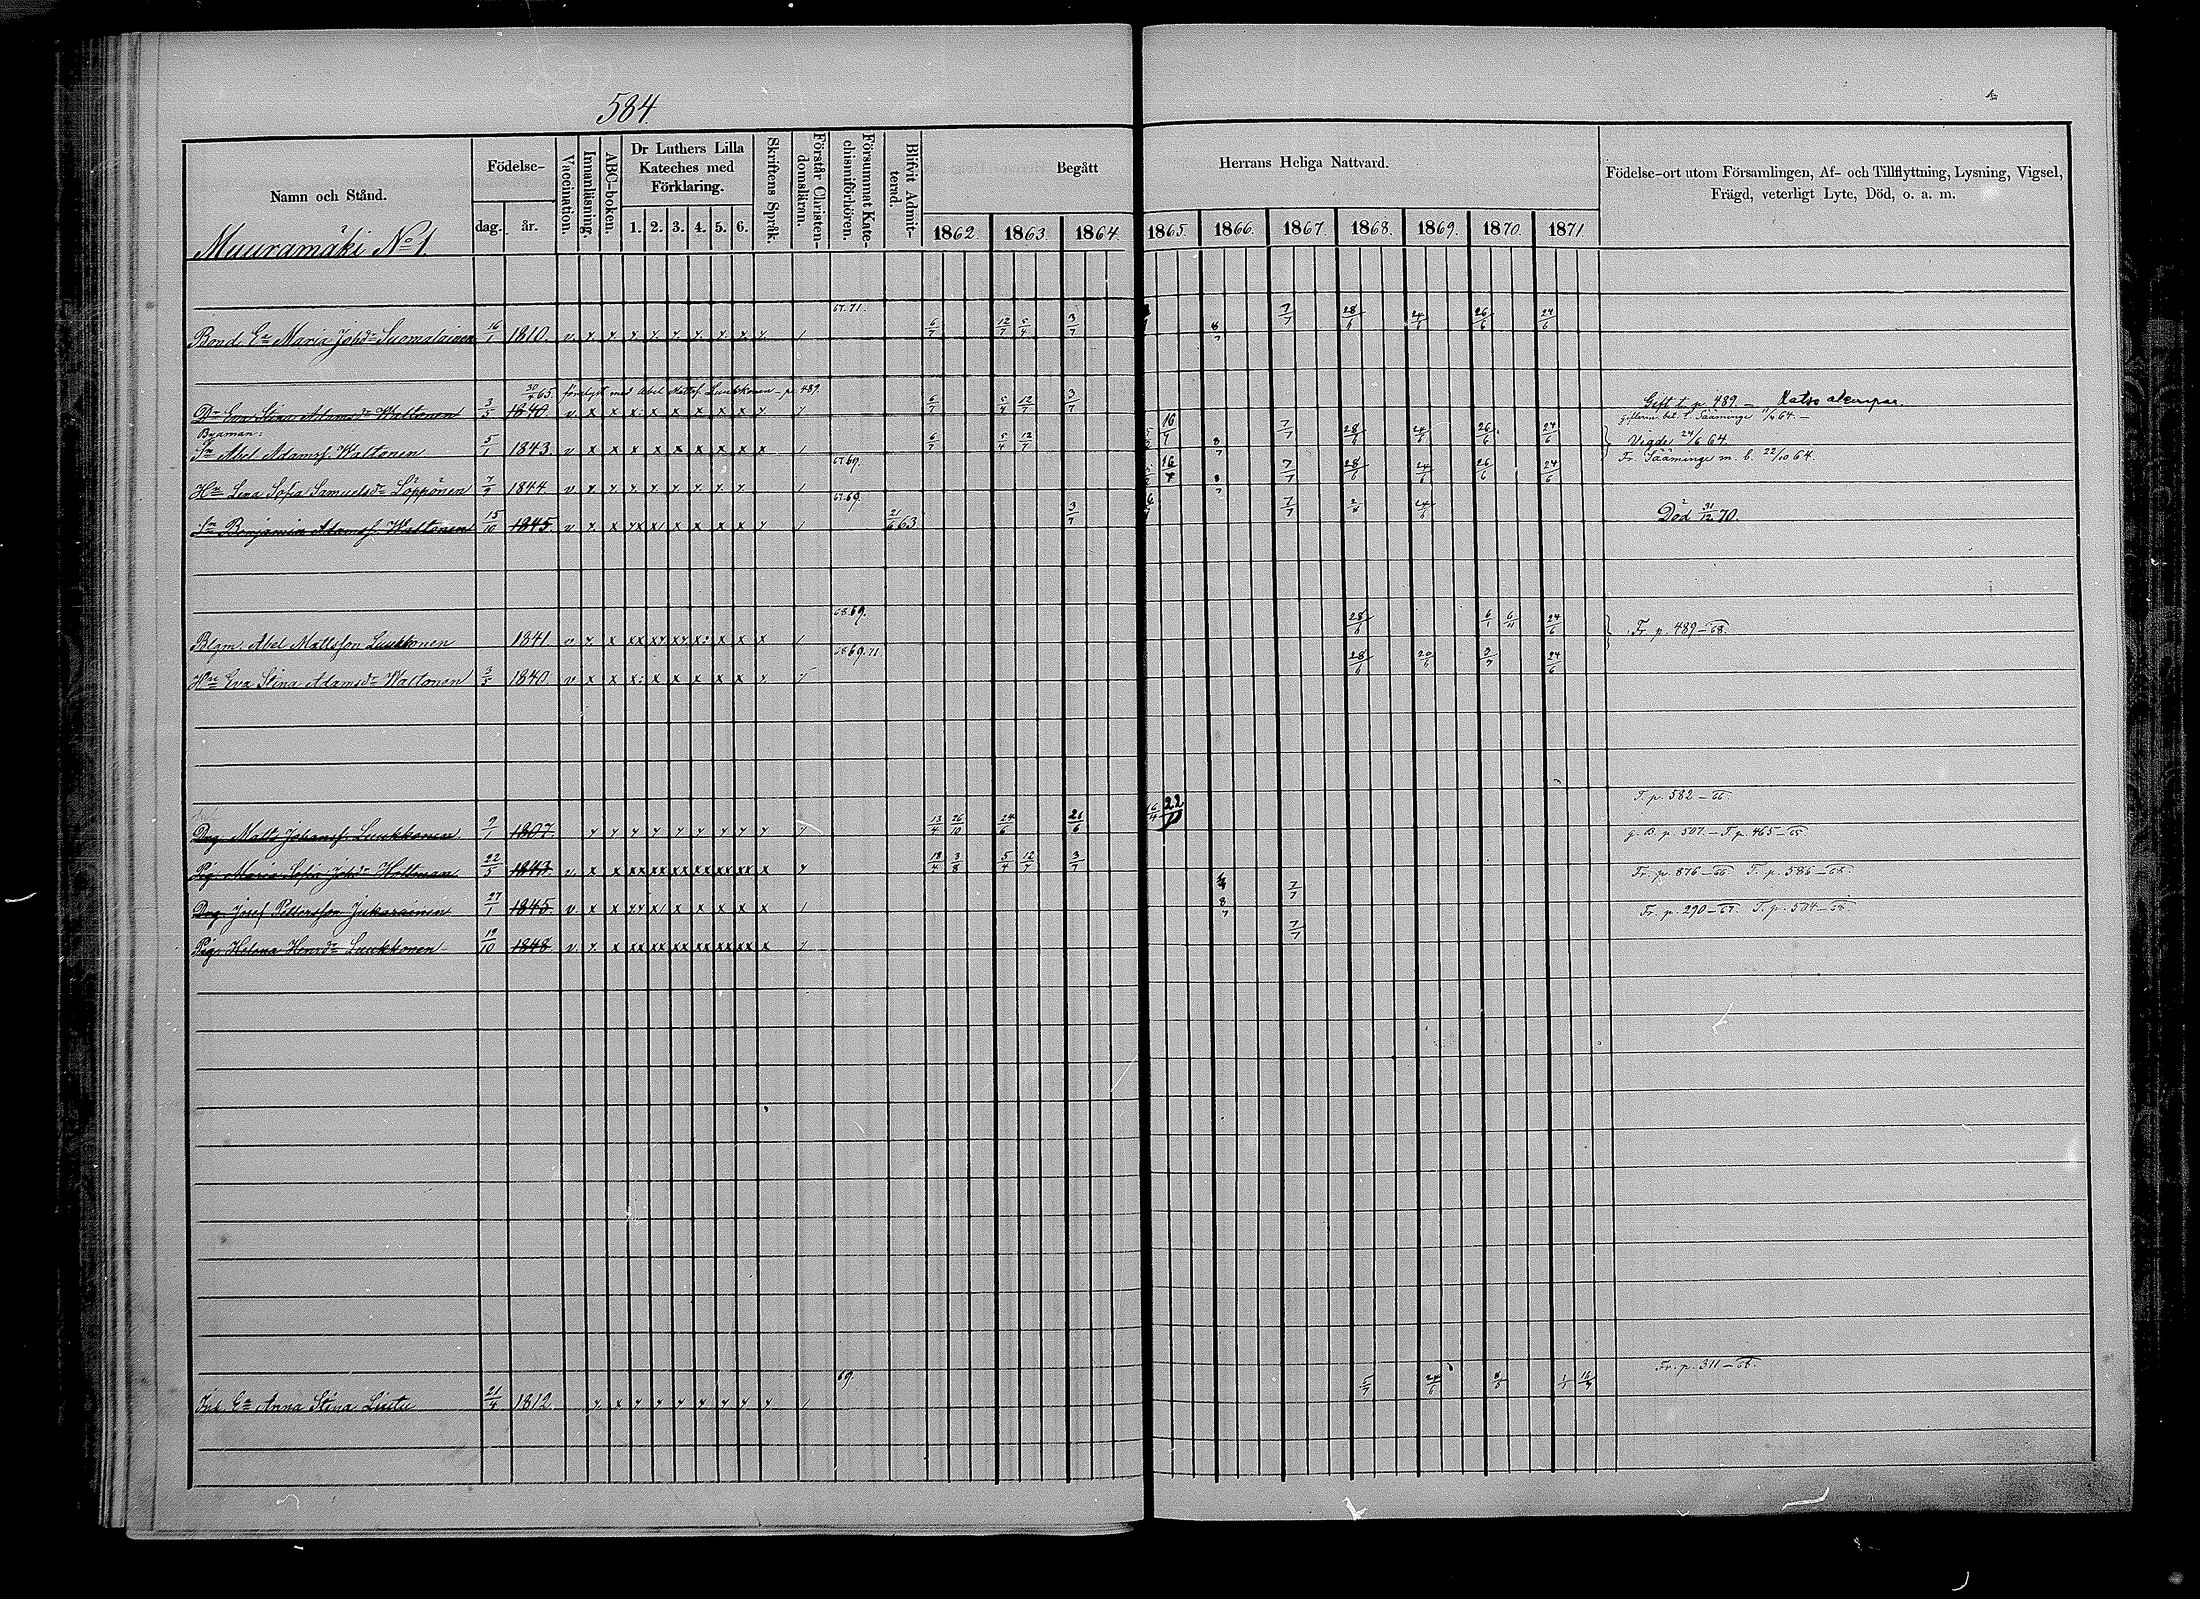 584.
Namn och Stånd.
Födelse-
dag. år.
Vaccination.
Innanläsning.
ABC-boken.
Dr Luthers Lilla Kateches med Förklaring.
1. 2. 3. 4. 5. 6.
Skriftens Språk.
Förstår Christendomsläran.
Försummat Katechismiförhören.
Blifvit Admitterad.
Begått Herrans Heliga Nattvard.
1862. 1863. 1864. 1865. 1866. 1867. 1868. 1869. 1870. 1871.
Födelse-ort utom Församlingen, Af- och Tillflyttning, Lysning, Vigsel,
Frägd, veterligt Lyte, Död, o. a. m.
Muuramäki No 1.
67.71.
Bond. Ea Maria Johsdr Suomalainen 16/1 1810. v 6/7 12/7 5/4 3/7 8/7 7/7 28/6 24/6 26/6 24/6
30/4 65. förelyst med Abel Mattsf. Luukkonen p. 489
Dr Eva Stina Adamsdr Waltonen 3/5 1840 v 6/7 5/4 12/7 3/7 Gift t. p. 489
gifterm. bet. t. Sääminge 64
Byaman:
Sn Abel Adamsf. Waltonen 5/1 1843 v 6/7 5/4 12/7 16/7 8/7 7/7 28/6 24/6 26/6 24/6 Vigde 24/6 64.
67.69.
Hu Lena Sofia Samuelsdr Löppönen 7/9 1844 v 16/7 8/7 7/7 28/6 24/6 26/6 24/6 Fr. Sääminge m. b. 22/10 64.
67.69.
Sn Benjamin Adamsf. Waltonen 15/10 1845 v 21/6 63 3/7 7/7 24/6 Död 31/12 70.
68.69.
Blgm. Abel Mattsson Luukkonen 1841. v 28/6 6/1 6/11 24/6 Fr. p. 489-68.
68.69.71.
Hu Eva Stina Adamsdr Waltonen 3/5 1840. v 28/6 20/6 3/7 24/6
Drg. Matts Johansf. Luukkonen 9/1 1807 13/4 26/10 24/6 26/6 16/4 22/10 T. p. 582-66
Pig. Maria Sofia Johsdr Holtman 22/5 1843 v 18/4 3/8 5/4 12/7 3/7 g. B. p. 507. T. p. 465-65
Drg. Josef Pettersson Jukarainen 27/1 1845 v 7/7 Fr. p. 876-66 T. p. 586-68.
Pig. Helena Henrsdr Luukkonen 19/10 1848 v 8/7 7/7 Fr. p. 290-67. T. p. 504-68.
69.
Enk. Ea Anna Stina Lintu 21/4 1812. 5/7 24/6 Fr. p. 311-68.